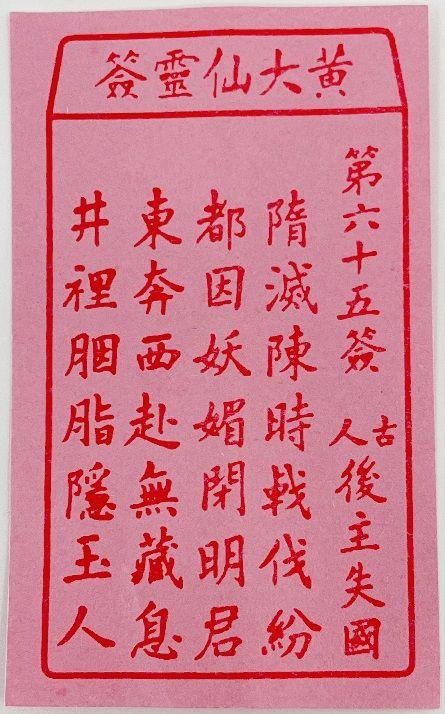 黃大仙靈簽
第六十五簽 古人 後主失國
隋滅陳時戰伐紛
都因妖媚閉明君
東奔西赴無藏息
井裡胭脂隱玉人